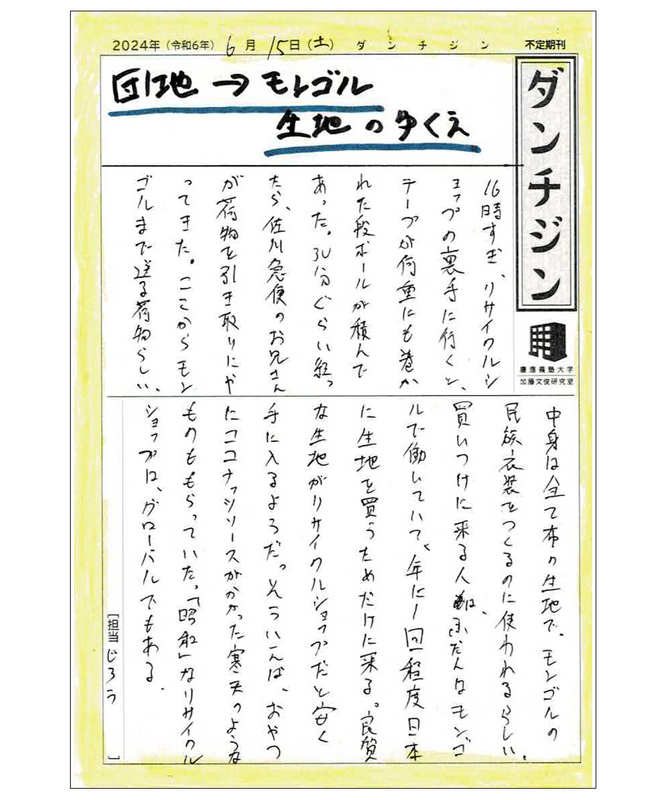 2024年(令和6年) 6月15日(土) ダンチジン 不定期刊
ダンチジン
慶應義塾大学
加藤文俊研究室
団地→モンゴル
生地のゆくえ
16時すぎ、リサイクルシ
ョップの裏手に行くと、
テープが何重にも巻か
れた段ボールが積んで
あった。30分ぐらい経っ
たら、佐川急便のお兄さん
が荷物を引き取りにや
ってきた。ここからモン
ゴルまで送る荷物らしい。
中身は全て布の生地で、モンゴルの
民族衣装をつくるのに使われるらしい。
買いつけに来る人は、ふだんはモンゴ
ルで働いていて、年に1回程度日本
に生地を買うためだけに来る。良質
な生地がリサイクルショップだと安く
手に入るようだ。そういえば、おやつ
にココナッツソースがかかった寒天のような
ものももらっていた。「昭和」なリサイクル
ショップは、グローバルでもある。
[担当 じろう ]